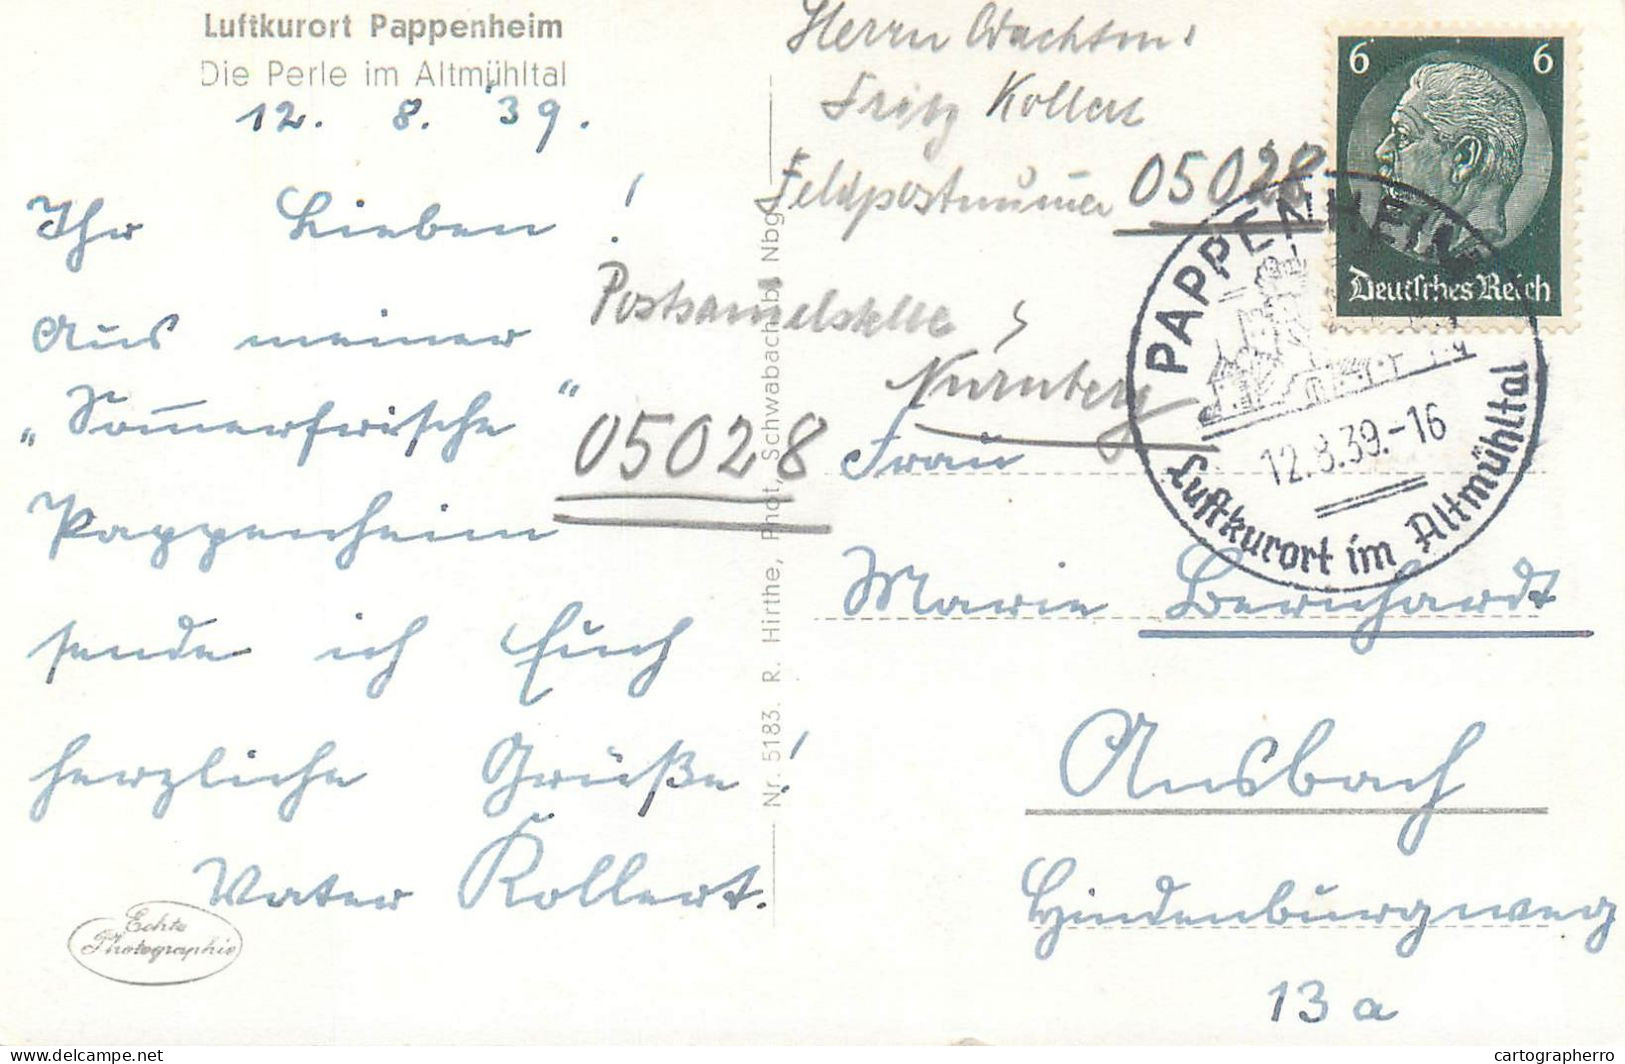 Luftkurort Pappenheim
Die Perle im Altmühltal
12. 8. '39.
Ihr Lieben!
Aus meiner
„Som̅erfrische"
Pappenheim
sende ich Euch
herzliche Grüße!
Vater Kollert.
Echte
Photographie
Nr. 5183. R. Hirthe, Phot., Schwabach b. Nbg.
Herrn Wachtm.
Fritz Kollert
Feldpostnum̅er 05028
Postsam̅elstelle
Nürnberg
05028
Frau
Marie Bernhardt
Ansbach
Hindenburgweg
13 a
6 6
Deutsches Reich
PAPPENHEIM
12.8.39.-16
Luftkurort im Altmühltal
cartographerro
Delcampe.net